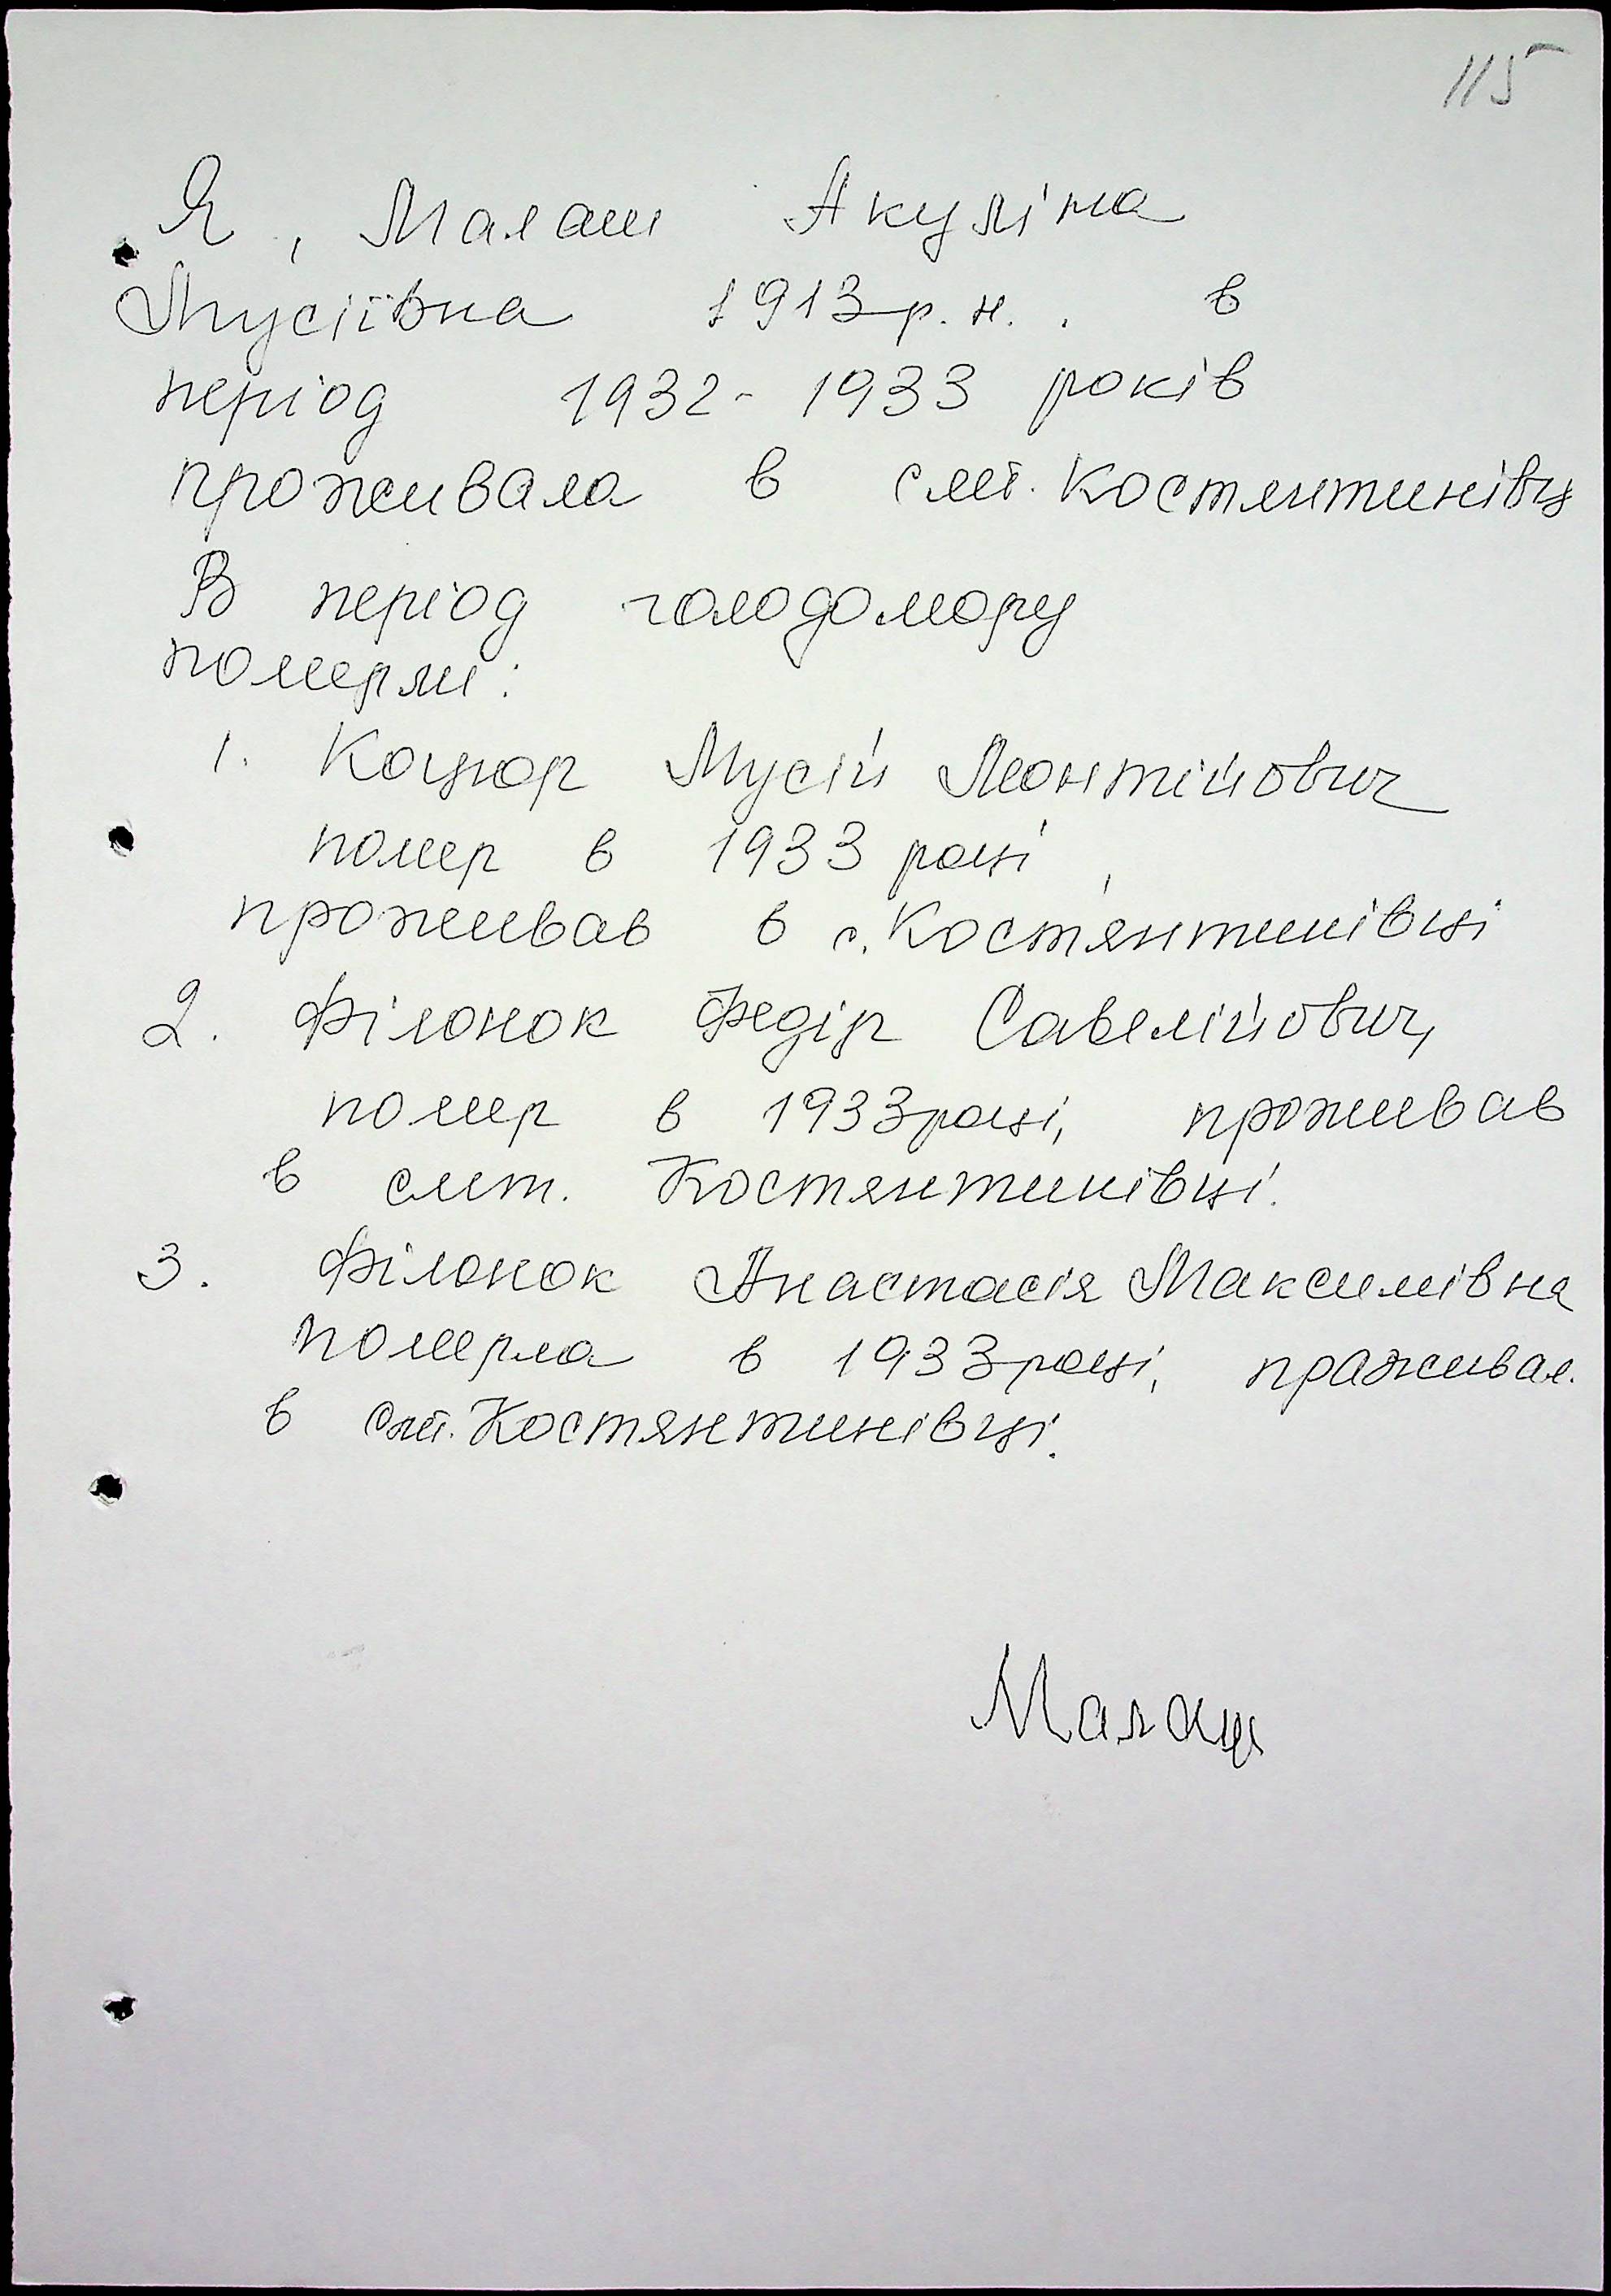 115
Я, Малаш Акуліна
Мусіївна 1913 р.н., в
період 1932-1933 років
проживала в смт. Костянтинівц
В період голодомору
померли:
1. Коцюр Мусій Леонтійович
помер в 1933 році,
проживав в с. Костянтинівці
2. Філонок Федір Савелійович,
помер в 1933 році, проживав
в смт. Костянтинівці.
3. Філонок Анастасія Максимівна
померла в 1933 році, праживал.
в смт. Костянтинівці.
Малаш